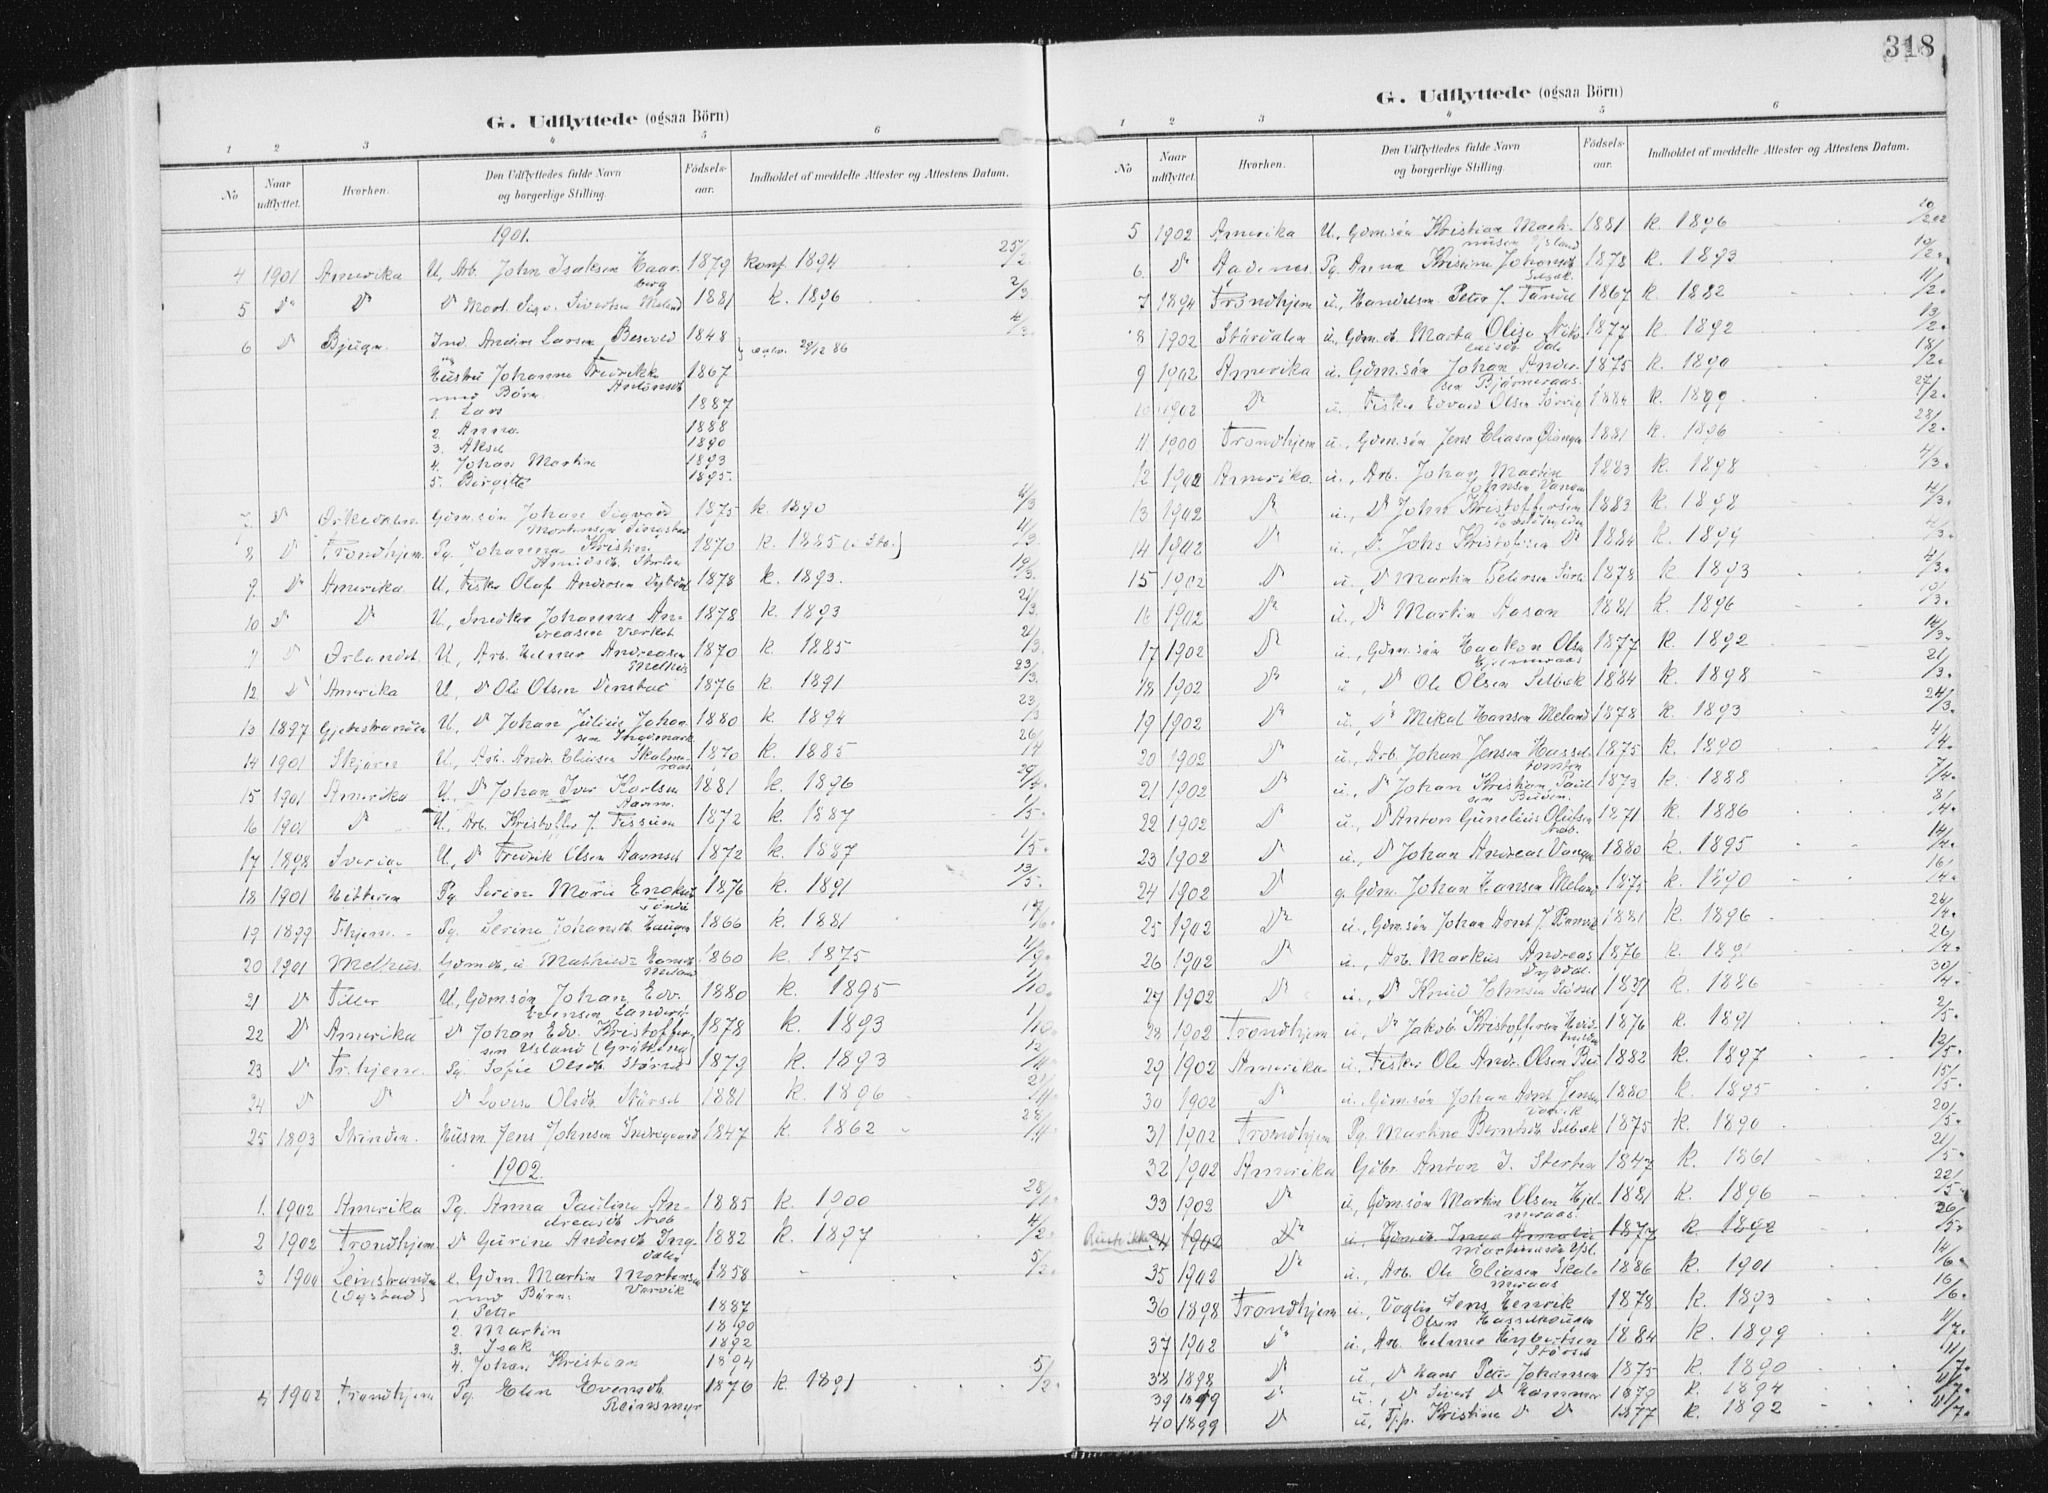 G. Udflyttede (ogsaa Börn)
1 2 3 4 5 6
No Naar udflyttet. Hvorhen. Den Udflyttedes fulde Navn og borgerlige Stilling. Födsels-aar. Indholdet af meddelte Attester og Attestens Datum.
1901.
4 1901 Amerika U. Arb. John Isaksen Haarberg 1879 konf. 1894 25/2
5 Do Do Do Mort. Sigv. Sivertsen Meland 1881 k. 1896 2/3
6 Do Bjugn Ind. Anders Larsen Besvold 1848 4/3
og Hustru Johanne Fredrikke Antonsdt 1867 29/12 86
med Börn
1. Lars 1887
2. Anna 1888
3. Aksel 1890
4. Johan Martin 1893
5. Birgitte 1895.
7. Do Orkedalen Gdm.sön Johan Sigvald Mortensen Singstad 1875 k. 1890 4/3
8 Do Trondhjem Pg. Johanna Kristine 1870 k. 1885 4/3
9. Do Amerika U. Fisker Olaf Andersen Dybdal 1878 k. 1893. 19/3.
10 Do Do U. Snedker Johannes Andreasen 1878 k. 1893 21/3.
11 Do Örlandet U. Arb. Helmer Andreasen 1870 k. 1885 21/3.
12. Do Amerika U. Do Ole Olsen Denstad 1876 k. 1891 23/3.
13 1897 U. Do Johan Julius Johansen 1880 k. 1894 23/3
14 1901 U. Arb. Andr. Eliasen Skalmeraas 1870 k. 1885 26/4
15 1901 Amerika U. Do Johan Iver Karlsen 1881 k. 1896
16 1901 Do U. Arb. Kristoffer J. Fissum 1872 k. 1887 1/5.
17 1898 Sverige U. Do Fredrik Olsen 1872 k. 1887 1/5.
18 1901 Hitteren Pg. Serine Marie 1876 k. 1891 13/5.
19 1899 Thjem. Pg. Serine Johansdt. Haugen 1866 k. 1881
20 1901 Melhus. Gdm.dt. u. Mathilde Hansdt Meland 1860 k. 1875
21 Do Tiller U. Gdmsön Johan Edv. Evensen 1880 k. 1895 1/10.
22 Do Amerika Do Johan Edv. Kristoffersen Ysland 1878 k. 1893 1/10.
23 Do Tr.hjem. Pg. Sofie Olsdt. 1879 k. 1893
24 Do Do Do Lovise Olsdt. Störset 1881 k. 1896
25 1893 Strinden. Husm. Jens Johnsen 1847 k. 1862
1902.
1. 1902 Amerika Pg. Anna Pauline Andreasdt. 1885 k. 1900
2 1902 Trondhjem. Do Gurine Andersdt. Ingdalen 1882 k. 1897 4/2.
3 1900 Leinstranden (Ogstad) e. Gdm. Martin Mortensen Varvik 1858 5/2.
med Börn:
1. Petr 1887
2. Martin 1890
3. Isak 1892
4. Johan Kristian 1894
4 1902 Trondhjem Pg. Elen Evensdt. Reinsmyr 1876 k. 1891 5/2.
318
G. Udflyttede (ogsaa Börn)
1 2 3 4 5 6
No Naar udflyttet. Hvorhen. Den Udflyttedes fulde Navn og borgerlige Stilling. Födsels-aar. Indholdet af meddelte Attester og Attestens Datum.
5 1902 Amerika U. Gdm.sön Kristian Martinusen Ysland 1881 k. 1896 10/2 02
6. Do Pg. Arena Kristina Johansdt. Selbæk. 1878 k. 1893 10/2.
7 1894 Trondhjem u. Handelsm. Peter J. 1867 k. 1882 11/2.
8 1902 Stördalen u. Gdm.dt. Marta Olise Nikolaisdt. 1877 k. 1892 13/2.
9 1902 Amerika u. Gdm.sön Johan Andersen Bjørneraas. 1875 k. 1890 18/2.
10 1902 Do u. Fisker Edvard Olsen Sörvig 1884 k. 1899 27/2.
11 1900 Trondhjem u. Gdm.sön Jens Eliasen Öiangen 1881 k. 1896 28/2.
12 1902 Amerika u. Arb. Johan Martin Johnsen 1883 k. 1898 4/3.
13 1902 Do u. Do John Kristoffersen 1883 k. 1898 4/3.
14 1902 Do u. Do Johs Kristoffersen Do 1884 k. 1899 4/3.
15 1902 Do u. Do Martin Petersen 1878 k. 1893 4/3.
16 1902 Do u. Do Martin Aasan 1881 k. 1896 10/3.
17 1902 Do u. Gdm.sön Haakon Olsen 1877 k. 1892 14/3.
18 1902 Do u. Do Ole Olsen Selbæk 1884 k. 1898 21/3.
19 1902 Do u. Do Mikal Hansen Meland 1878 k. 1893 24/3.
20 1902 Do u. Arb. Johan Jensen 1875 k. 1890 4/4.
21 1902 Do u. Do Johan Kristian Paulsen 1873 k. 1888 7/4.
22 1902 Do u. Do Anton Gunelius Olufsen 1871 k. 1886 8/4.
23 1902 Do u. Do Johan Andreas 1880 k. 1895 14/4.
24 1902 Do g. Gdm. Johan Hansen Meland 1875 k. 1890 16/4.
25 1902 Do u. Gdm.sön Johan Arnt J. 1881 k. 1896 26/4.
26 1902 Do u. Arb. Markus Andreas Dybdal. 1876 k. 1891 26/4.
27 1902 Do u. Do Knud Johnsen Störset 1871 k. 1886 30/4.
28 1902 Trondhjem u. Do Jakob Kristoffersen 1876 k. 1891 2/5.
29 1902 Amerika u. Fisker Ole Andr. Olsen 1882 k. 1897 12/5.
30 1902 Do u. Gdm.sön Johan Arnt Jensen 1880 k. 1895 15/5.
31 1902 Trondhjem Pg. Martine Berntsdt. Selbæk 1875 k. 1890 20/5.
32 1902 Amerika Gdbr. Anton I. Sterten 1847 k. 1861 21/5.
33 1902 Do u. Gdmsön Martin Olsen Hjelmeraas. 1881 k. 1896 22/5.
34 1902 Do u. Gdm.dt. Inga Amalie Martinusdt. Ysl. 1877 k. 1892 26/5.
35 1902 Do u. Arb. Ole Eliasen Skalmeraas 1886 k. 1901 14/6.
36 1898 Trondhjem u. Jens Henrik Olsen Hasselhougen 1878 k. 1893 16/6.
37 1902 Do u. Arb. Helmer Störset 1884 k. 1899 11/7.
38 1898 Do u. Do Hans Peter Johansen 1875 k. 1890 11/7.
39 1899 Do u. Do Sivert Do Hammer 1879 k. 1894 11/7.
40 1899 Do u. Tj.p. Kristine Do Do 1877 k. 1892 11/7.